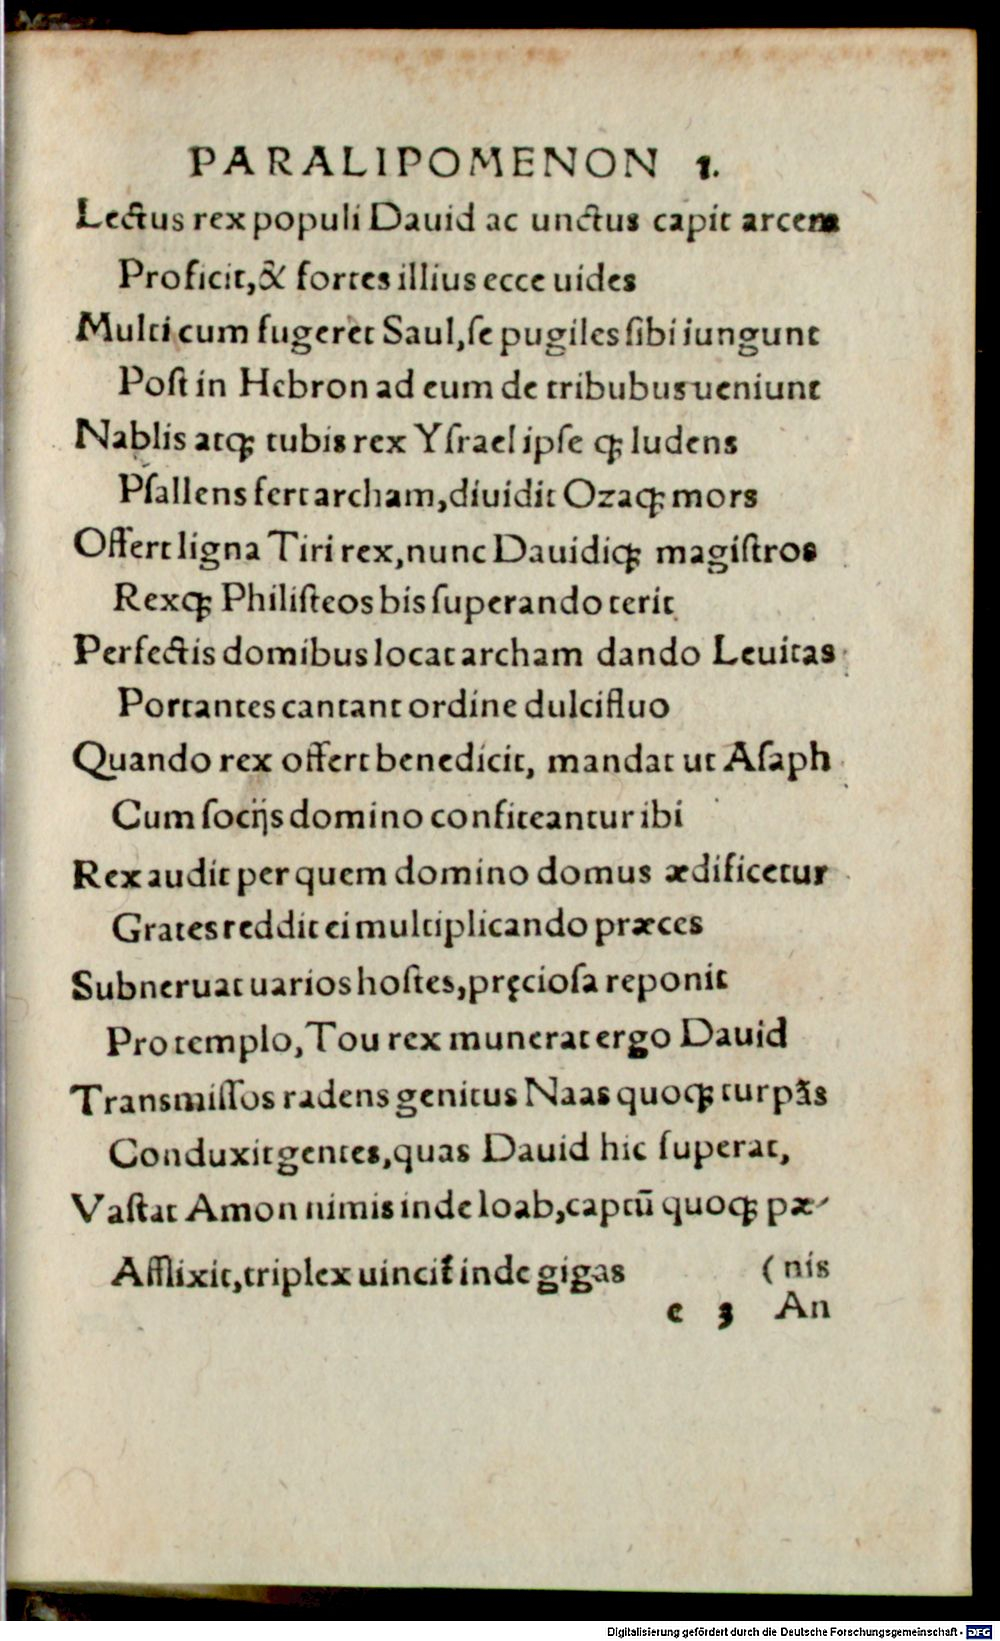 PARALIPOMENON 1.
Lectus rex populi Dauid ac unctus capit arcem
Proficit, & fortes illius ecce uides
Multi cum fugeret Saul, ſe pugiles ſibi iungunt
Poſt in Hebron ad eum de tribubus ueniunt
Nablis atqꝫ tubis rex Yſrael ipſe qꝫ ludens
Pſallens fert archam, diuidit Ozaqꝫ mors
Offert ligna Tiri rex, nunc Dauidiqꝫ magiſtros
Rexqꝫ Philiſteos bis ſuperando terit
Perfectis domibus locat archam dando Leuitas
Portantes cantant ordine dulcifluo
Quando rex offert benedicit, mandat ut Aſaph
Cum ſocijs domino confiteantur ibi
Rex audit per quem domino domus ædificetur
Grates reddit ei multiplicando præces
Subneruat uarios hoſtes, pręcioſa reponit
Pro templo, Tou rex munerat ergo Dauid
Transmiſſos radens genitus Naas quoqꝫ turpãs
Conduxit gentes, quas Dauid hic ſuperat,
Vaſtat Amon nimis inde Ioab, captũ quoqꝫ pæ-
Afflixit, triplex uincit̃ inde gigas (nis
e 3 An
Digitalisierung gefördert durch die Deutsche Forschungsgemeinschaft - DFG